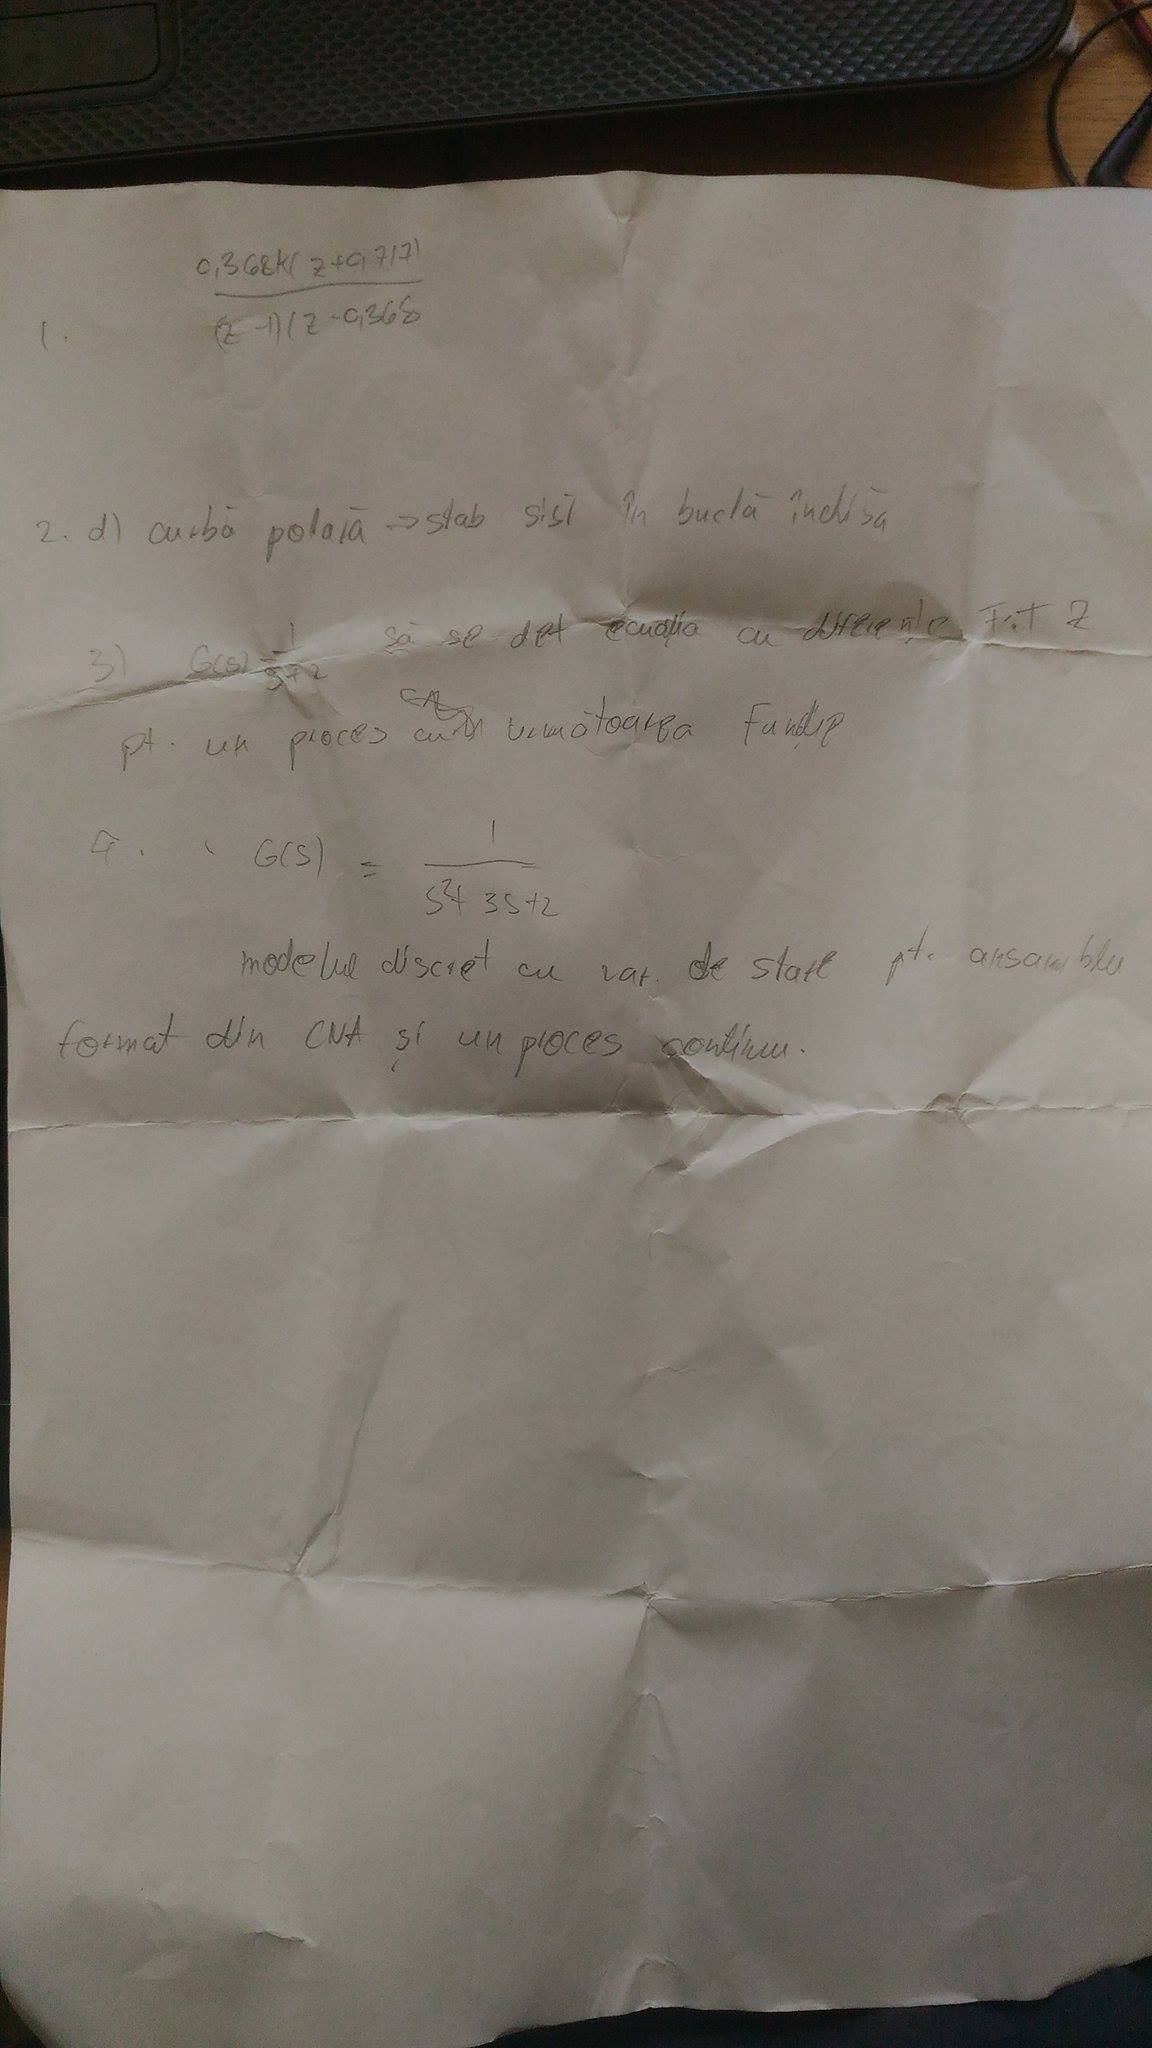 0,368k(z+0,717)
1.
(z-1)(z-0,368
2. d) curbă polară => stab sist în buclă închisă
3) G(s) = 1/s+2 să se det ecuația cu diferențe, F.T Z
pt. un proces cu următoarea Funcție
4. G(s) = 1
s²+3s+2
modelul discret cu var. de stare pt. ansamblu
format din CNA și un proces continuu.